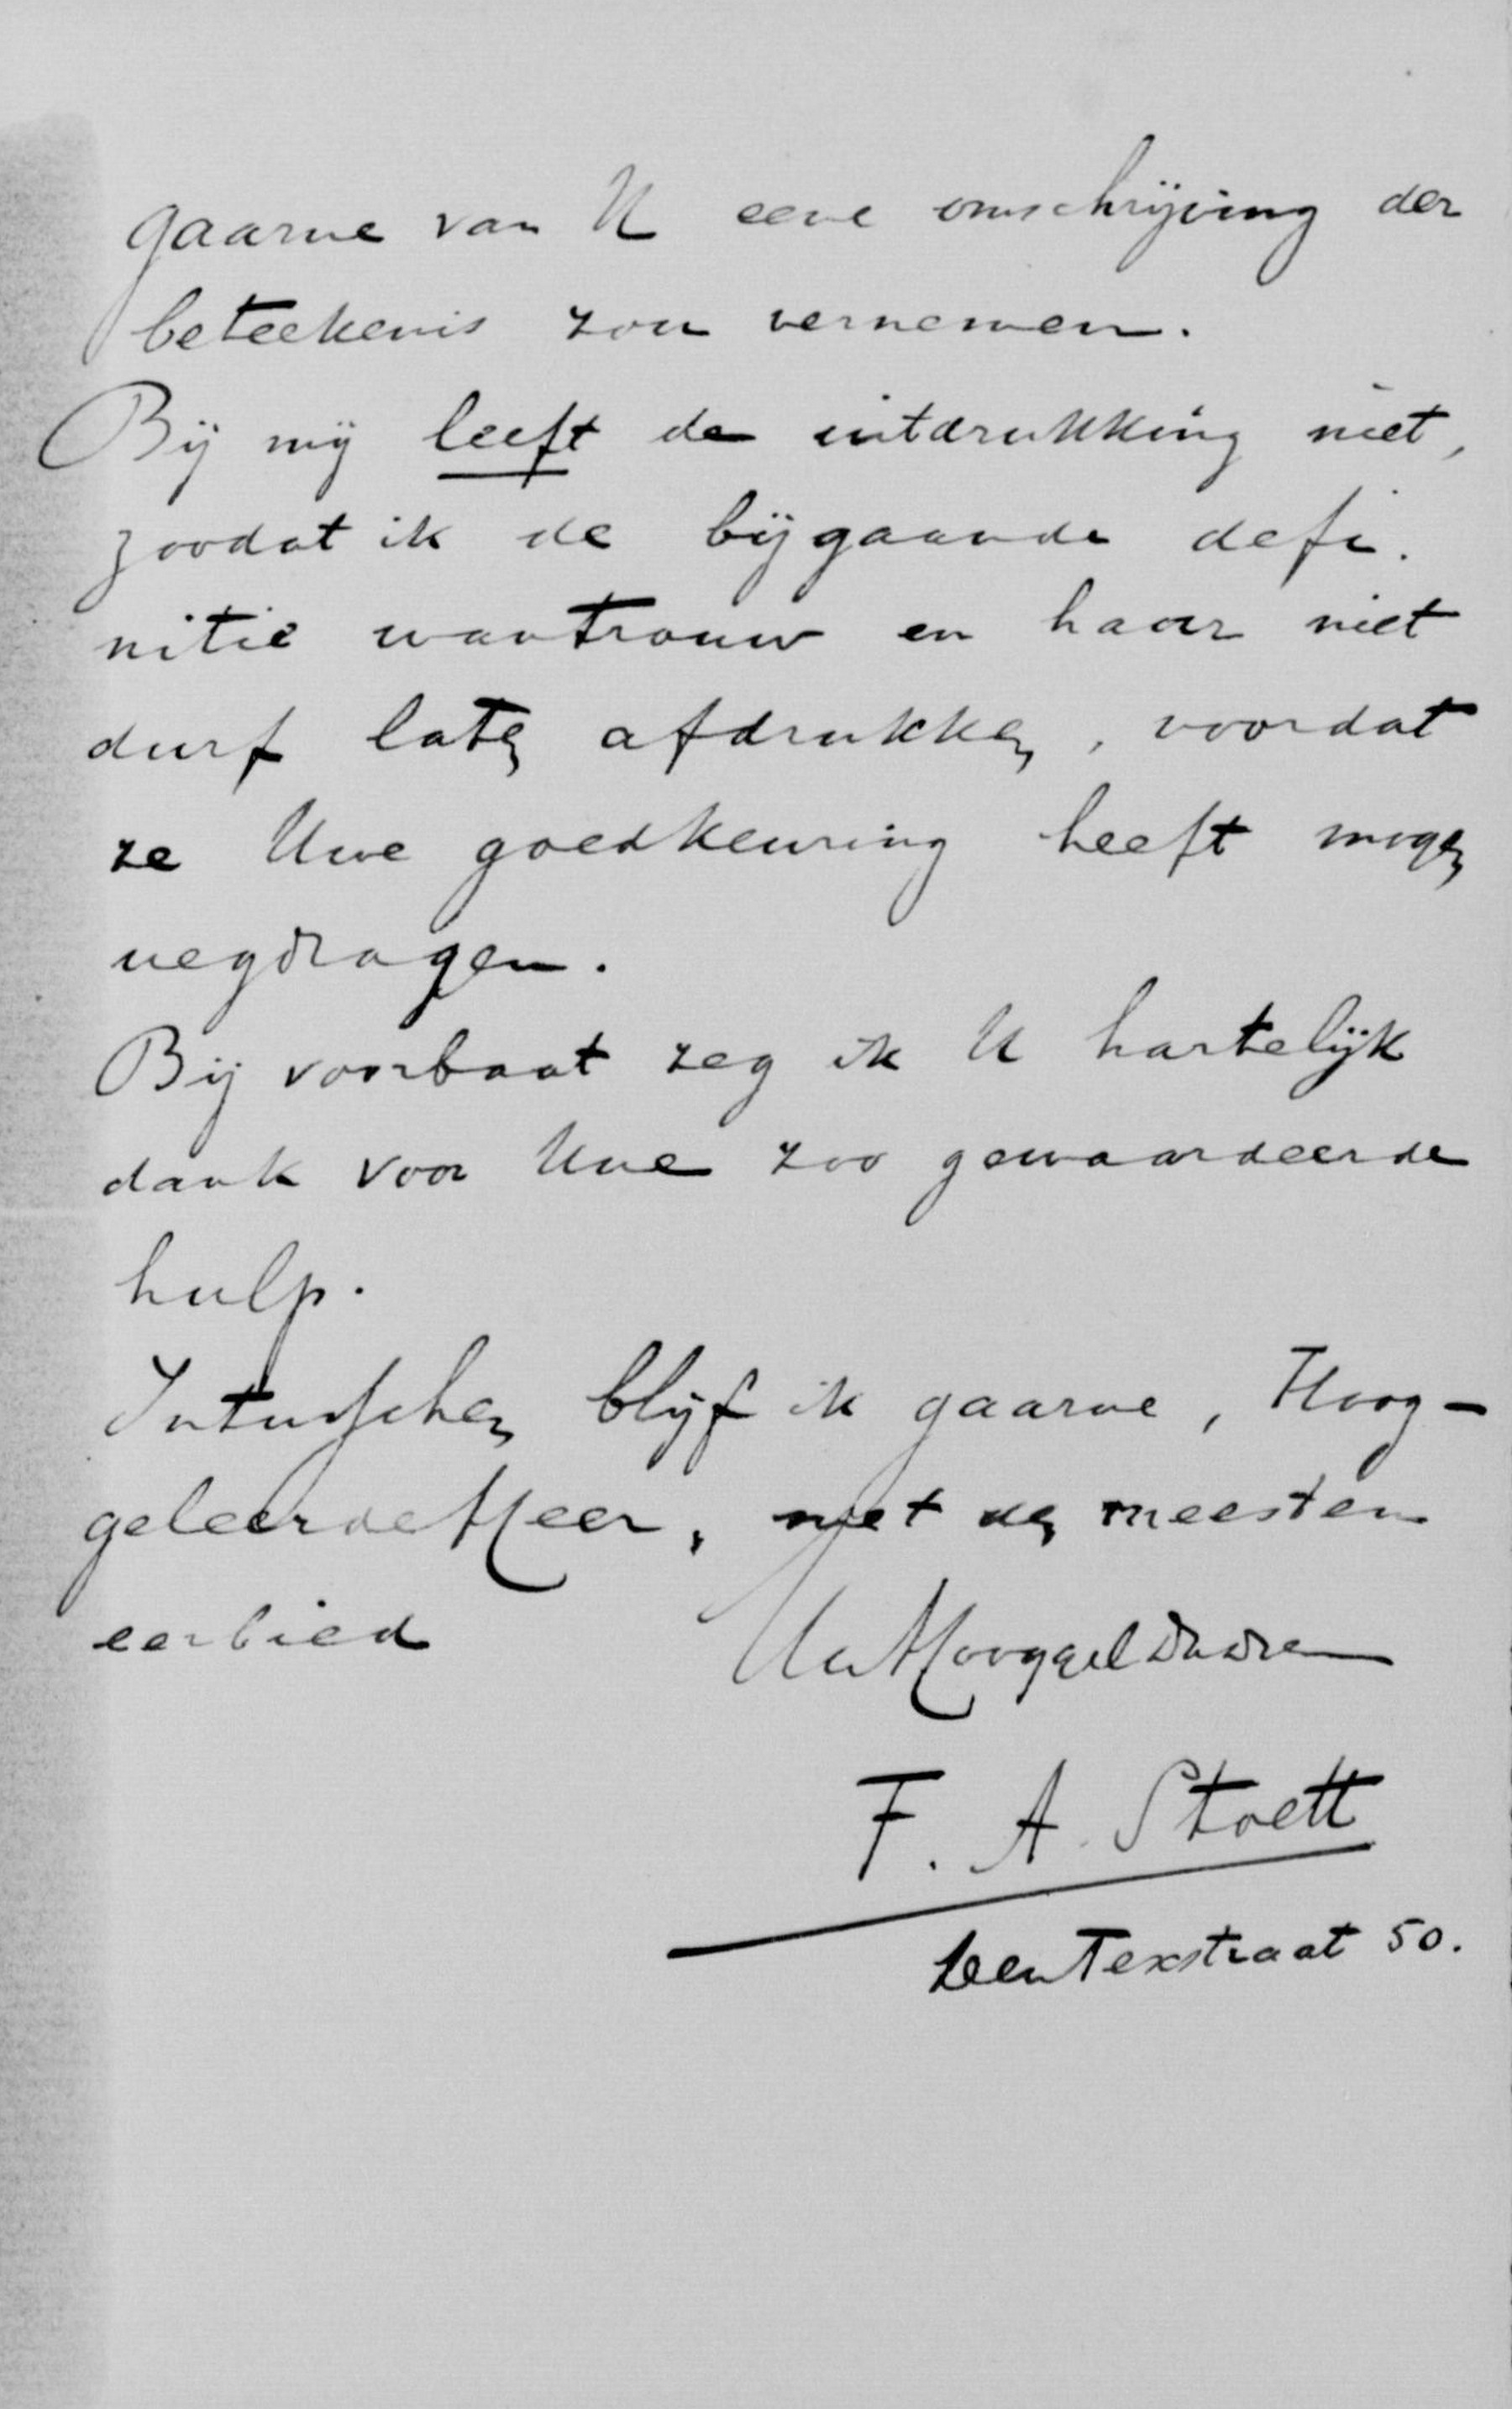 gaarne van U eene omschrijving der
beteekenis zou vernemen.
Bij mij leeft de uitdrukking niet,
zoodat ik de bijgaande defi-
nitie wantrouw en haar niet
durf laten afdrukken, voordat
ze Uwe goedkeuring heeft mogen
wegdragen.
Bij voorbaat zeg ik U hartelijk
dank voor Uwe zoo gewaardeerde
hulp.
Intusschen blijf ik gaarne, Hoog-
geleerde Heer, met den meesten
eerbied
Uw Hooggel
F. A. Stoett
Den Texstraat 50.